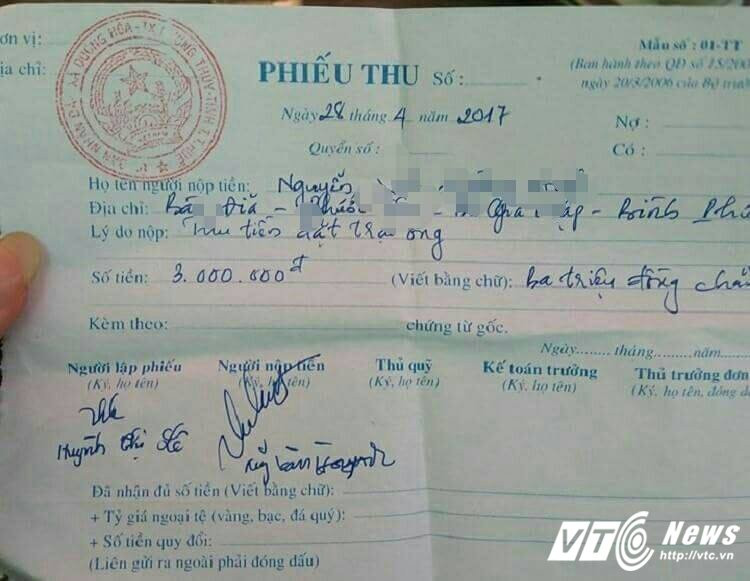 ơn vị:
ịa chỉ:
XÃ DƯƠNG HÒA - TX HƯƠNG THỦY - TỈNH T.T.HUẾ
BAN NHÂN DÂN
PHIẾU THU Số:
Mẫu số : 01-TT
(Ban hành theo QĐ số 15/200
ngày 20/3/2006 của Bộ trưở
Ngày 28 tháng 4 năm 2017
Nợ :
Quyển số :
Có :
Họ tên người nộp tiền: Nguyễn
Địa chỉ: - - - Bình Phư
Lý do nộp: Thu tiền đặt trại ong
Số tiền: 3.000.000đ (Viết bằng chữ): Ba triệu đồng chẵ
Kèm theo: chứng từ gốc.
Ngày......... tháng.........năm.......
Người lập phiếu Người nộp tiền Thủ quỹ Kế toán trưởng Thủ trưởng đơn
(Ký, họ tên) (Ký, họ tên) (Ký, họ tên) (Ký, họ tên) (Ký, họ tên, đóng dấ
Huỳnh Thị
Đã nhận đủ số tiền (Viết bằng chữ):
+ Tỷ giá ngoại tệ (vàng, bạc, đá quý):
+ Số tiền quy đổi:
(Liên gửi ra ngoài phải đóng dấu)
VTC News
http://vtc.vn